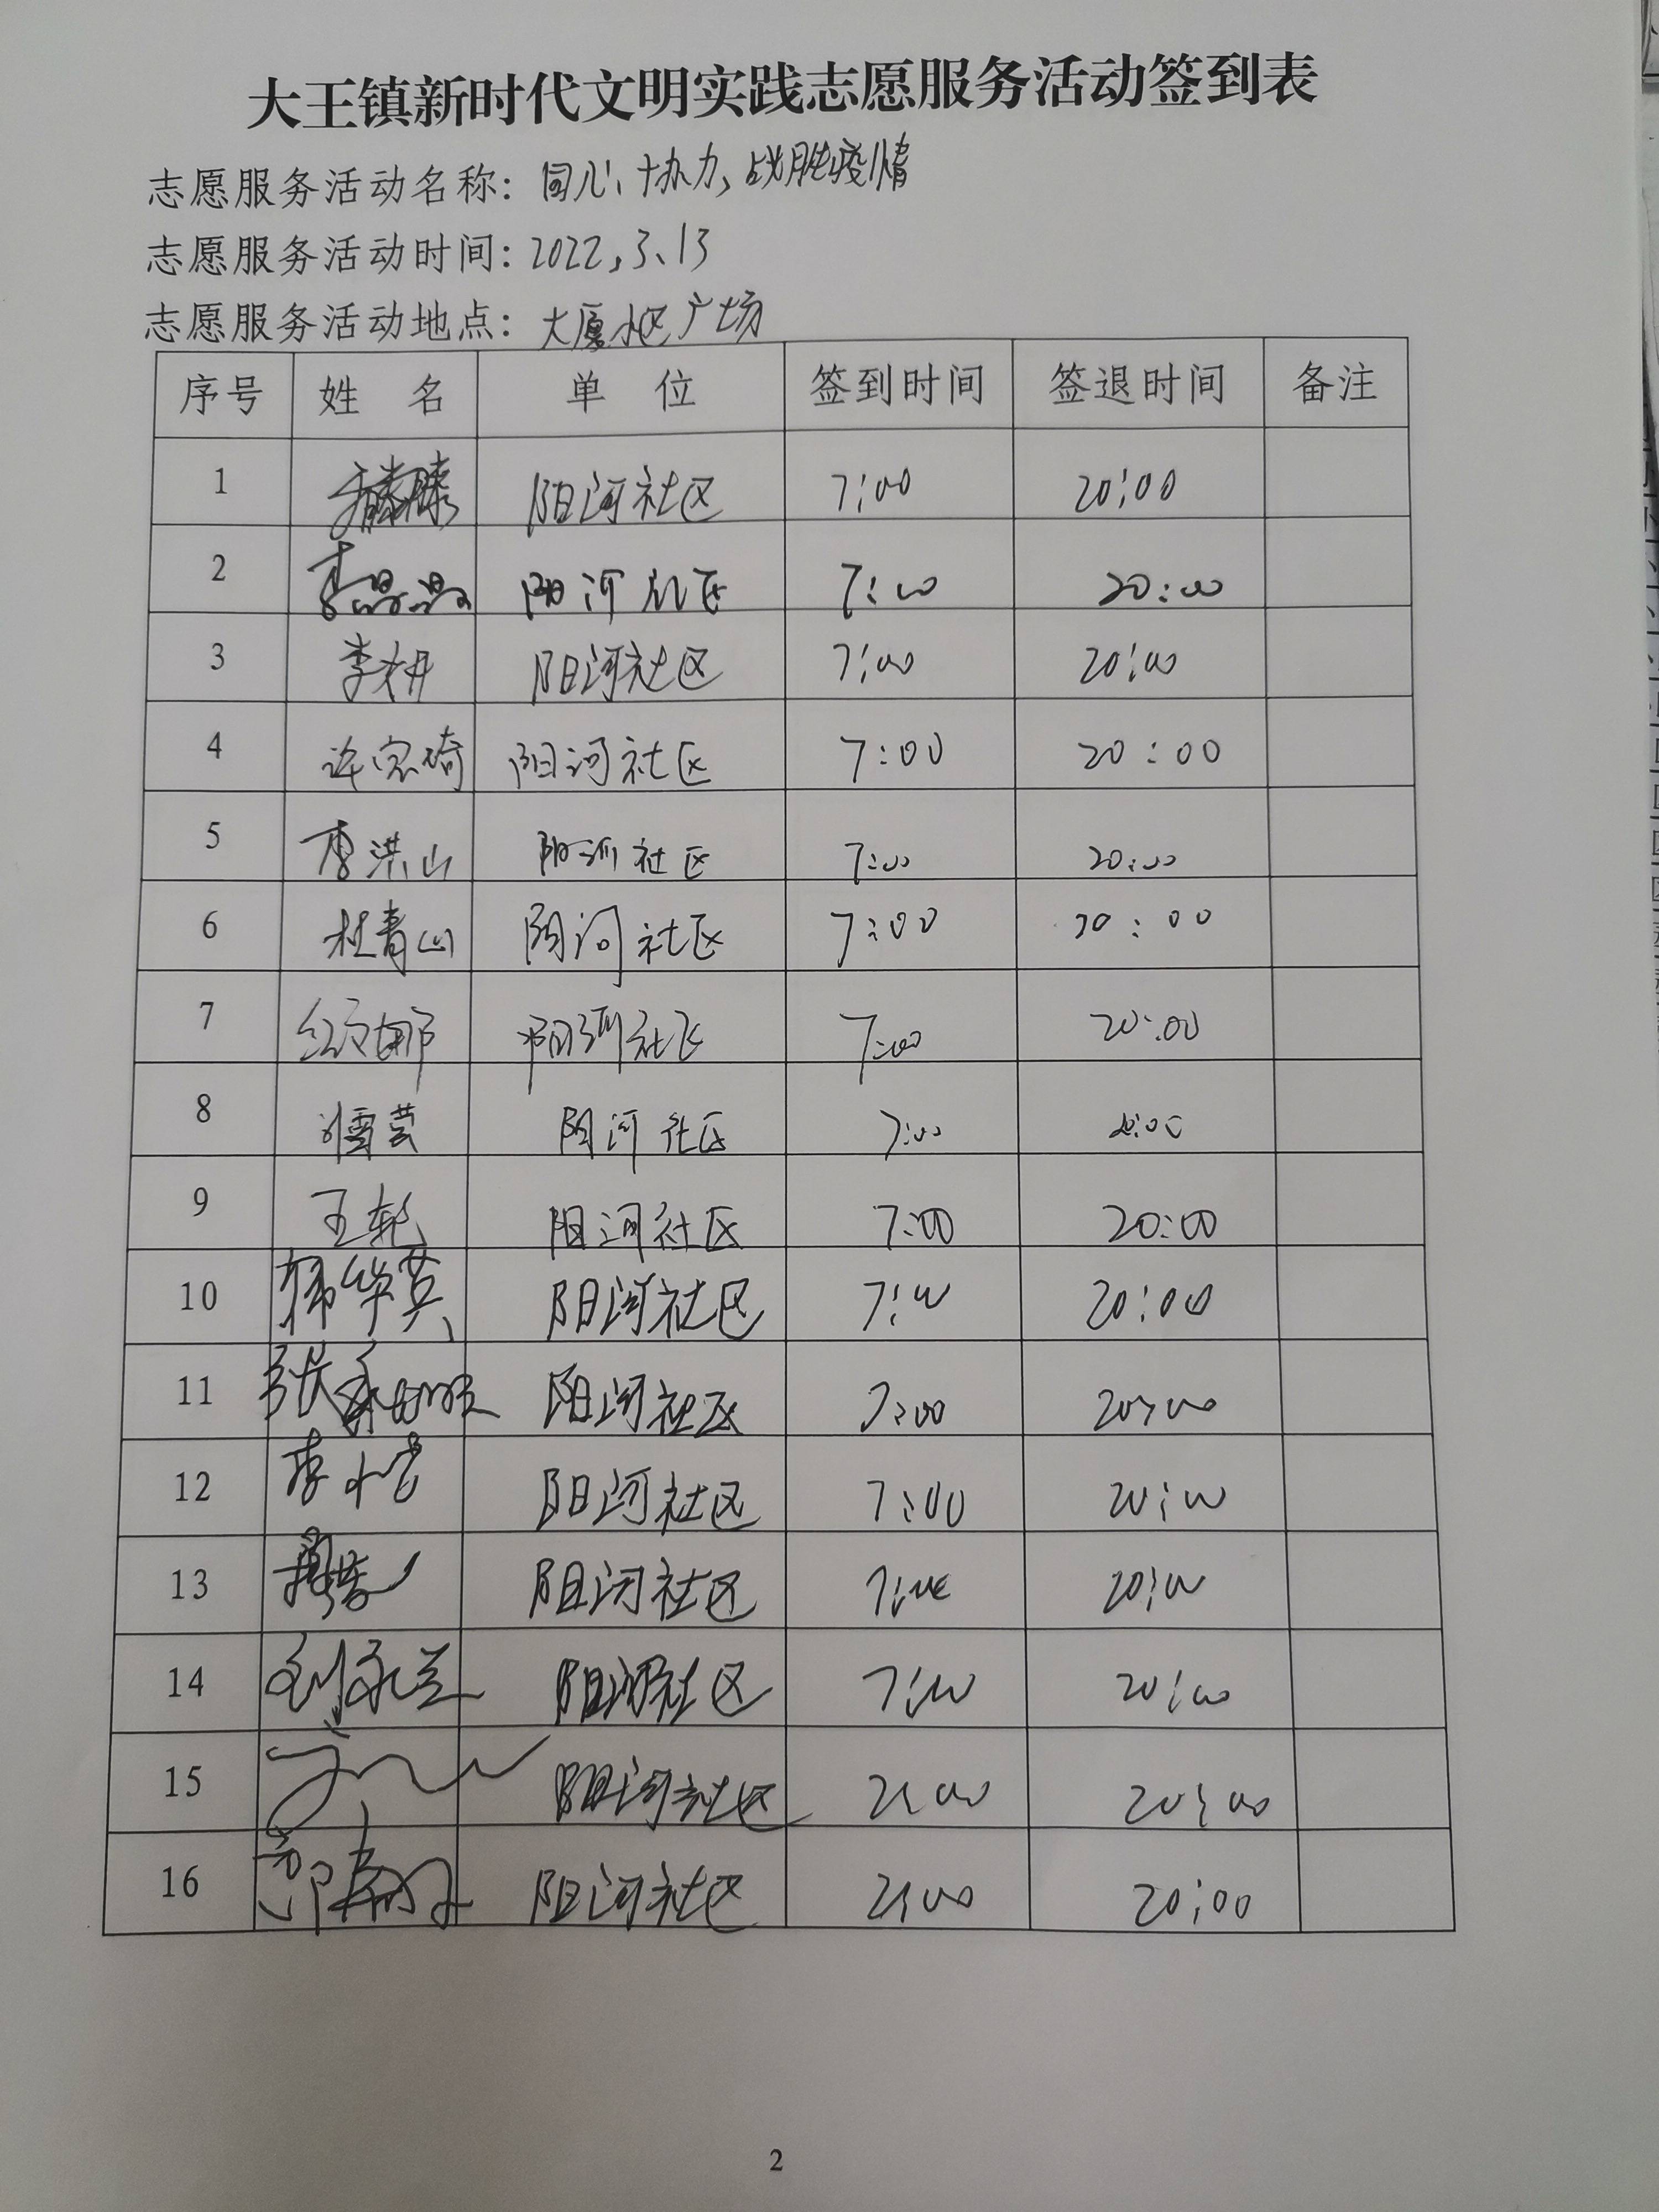 大王镇新时代文明实践志愿服务活动签到表
志愿服务活动名称：同心协力、战胜疫情
志愿服务活动时间：2022.3.13
志愿服务活动地点：大厦小区广场
序号 姓名 单位 签到时间 签退时间 备注
1 阳河社区 7:00 20:00
2 李晶晶 阳河社区 7:00 20:00
3 李 阳河社区 7:00 20:00
4 许宗琦 阳河社区 7:00 20:00
5 李洪山 阳河社区 7:00 20:00
6 杜青山 阳河社区 7:00 20:00
7 阳河社区 7:00 20:00
8 刘雪芸 阳河社区 7:00 20:00
9 王乾 阳河社区 7:00 20:00
10 韩华英 阳河社区 7:00 20:00
11 张 阳河社区 7:00 20:00
12 李 阳河社区 7:00 20:00
13 阳河社区 7:00 20:00
14 刘永兰 阳河社区 7:00 20:00
15 阳河社区 20:00
16 阳河社区 20:00
2